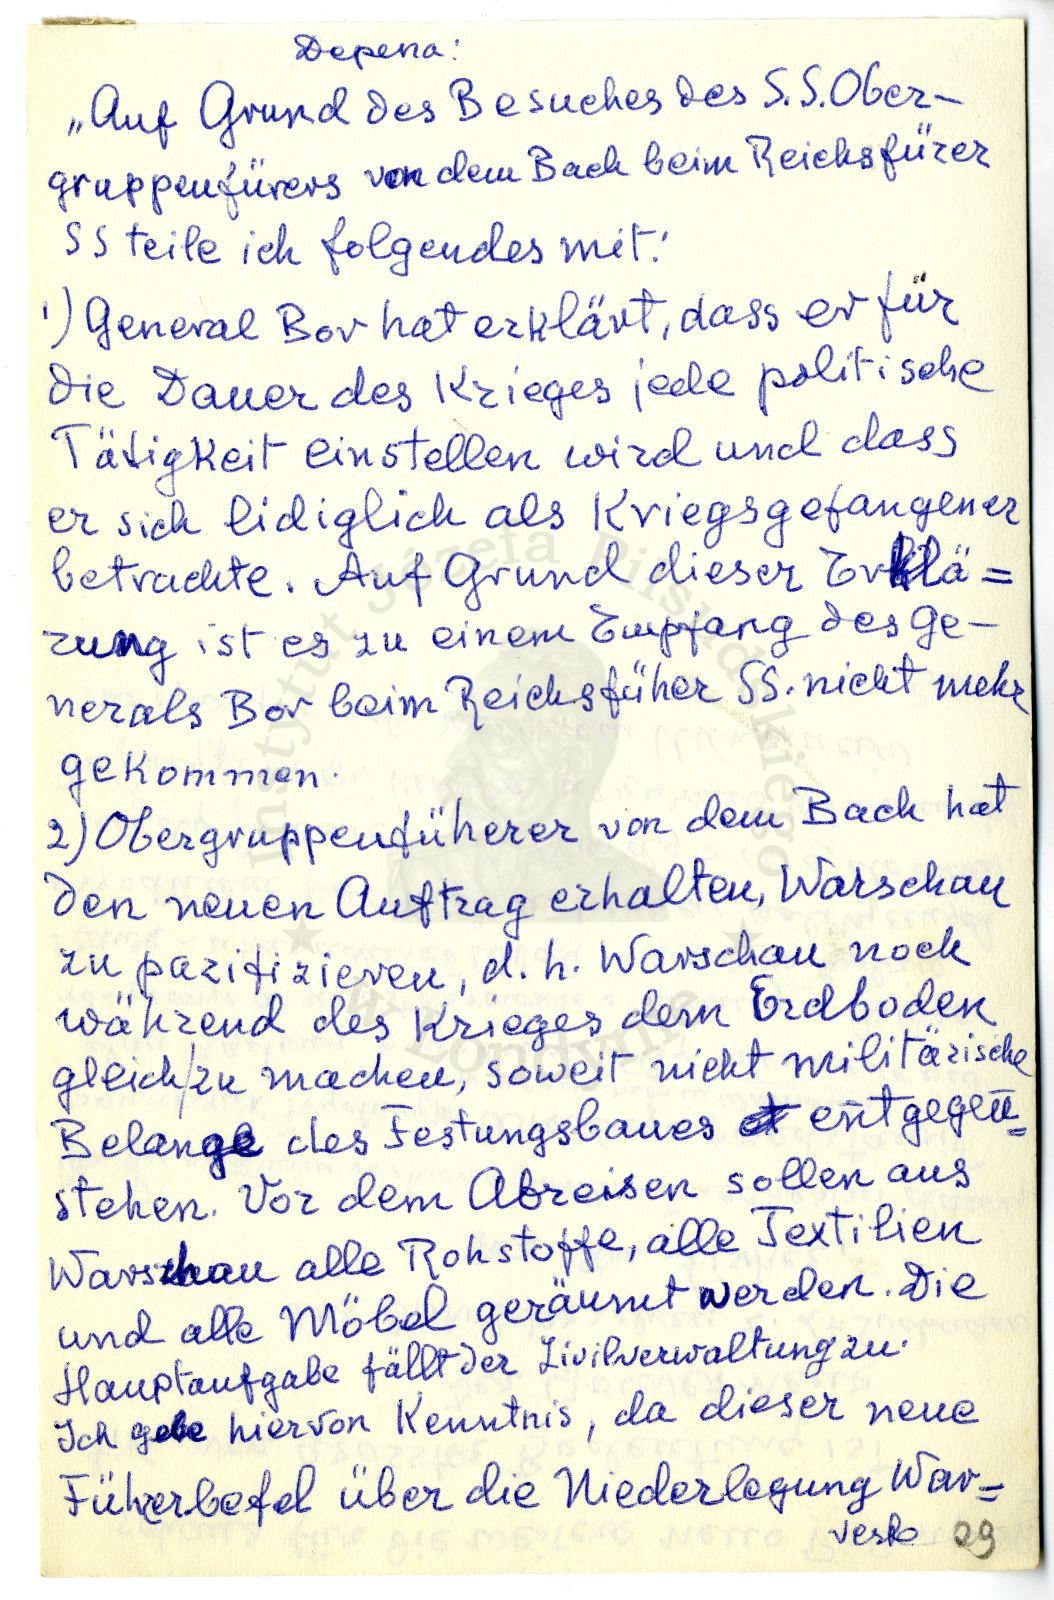 Depena:
„Auf Grund des Besuches des S.S. Ober-
gruppenfürers von dem Bach beim Reichsfürer
SS teile ich folgendes mit:
1) General Bor hat erklärt, dass er für
die Dauer des Krieges jede politische
Tätigkeit einstellen wird und dass
er sich lidiglich als Kriegsgefangener
betrachte. Auf Grund dieser Erklä=
rung ist es zu einem Empfang des Ge-
nerals Bor beim Reichsfüher SS. nicht mehr
gekommen.
2) Obergruppenfüherer von dem Bach hat
den neuen Auftrag erhalten, Warschau
zu pazifizieren, d. h. Warschau noch
während des Krieges dem Erdboden
gleich/zu machen, soweit nicht militärische
Belange des Festungsbaues entgegen=
stehen. Vor dem Abreisen sollen aus
Warschau alle Rohstoffe, alle Textilien
und alle Möbel geräumt werden. Die
Hauptaufgabe fällt der Zivilverwaltung zu.
Ich gebe hiervon Kenntnis, da dieser neue
Führerbefel über die Niederlegung War=
29
Instytut Józefa Piłsudskiego
w Londynie